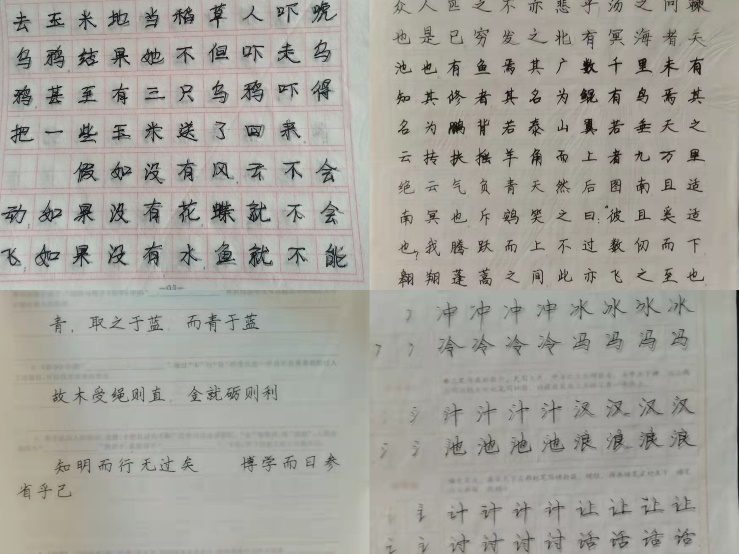 去玉米地当稻草人吓唬
乌鸦结果她不但吓走乌
鸦甚至有三只乌鸦吓得
把一些玉米送了回来
假如没有风云不会
动如果没有花蝶就不会
飞如果没有水鱼就不能
众人匹之不亦悲乎汤之问棘
也是已穷发之北有冥海者天
池也有鱼焉其广数千里未有
知其修者其名为鲲有鸟焉其
名为鹏背若泰山翼若垂天之
云抟扶摇羊角而上者九万里
绝云气负青天然后图南且适
南冥也斥鴳笑之曰:“彼且奚适
也?我腾跃而上不过数仞而下
翱翔蓬蒿之间此亦飞之至也
青，取之于蓝 而青于蓝
故木受绳则直 金就砺则利
知明而行无过矣 博学而日参
省乎己
冫 冲 冲 冲 冲 冰 冰 冰 冰
冫 冫 冷 冷 冷 冷 冯 冯 冯 冯
氵 汁 汁 汁 汁 汉 汉 汉 汉
氵 氵 池 池 池 池 浪 浪 浪 浪
讠 计 计 计 计 让 让 让 让
讠 讠 讨 讨 讨 讨 话 话 话 话